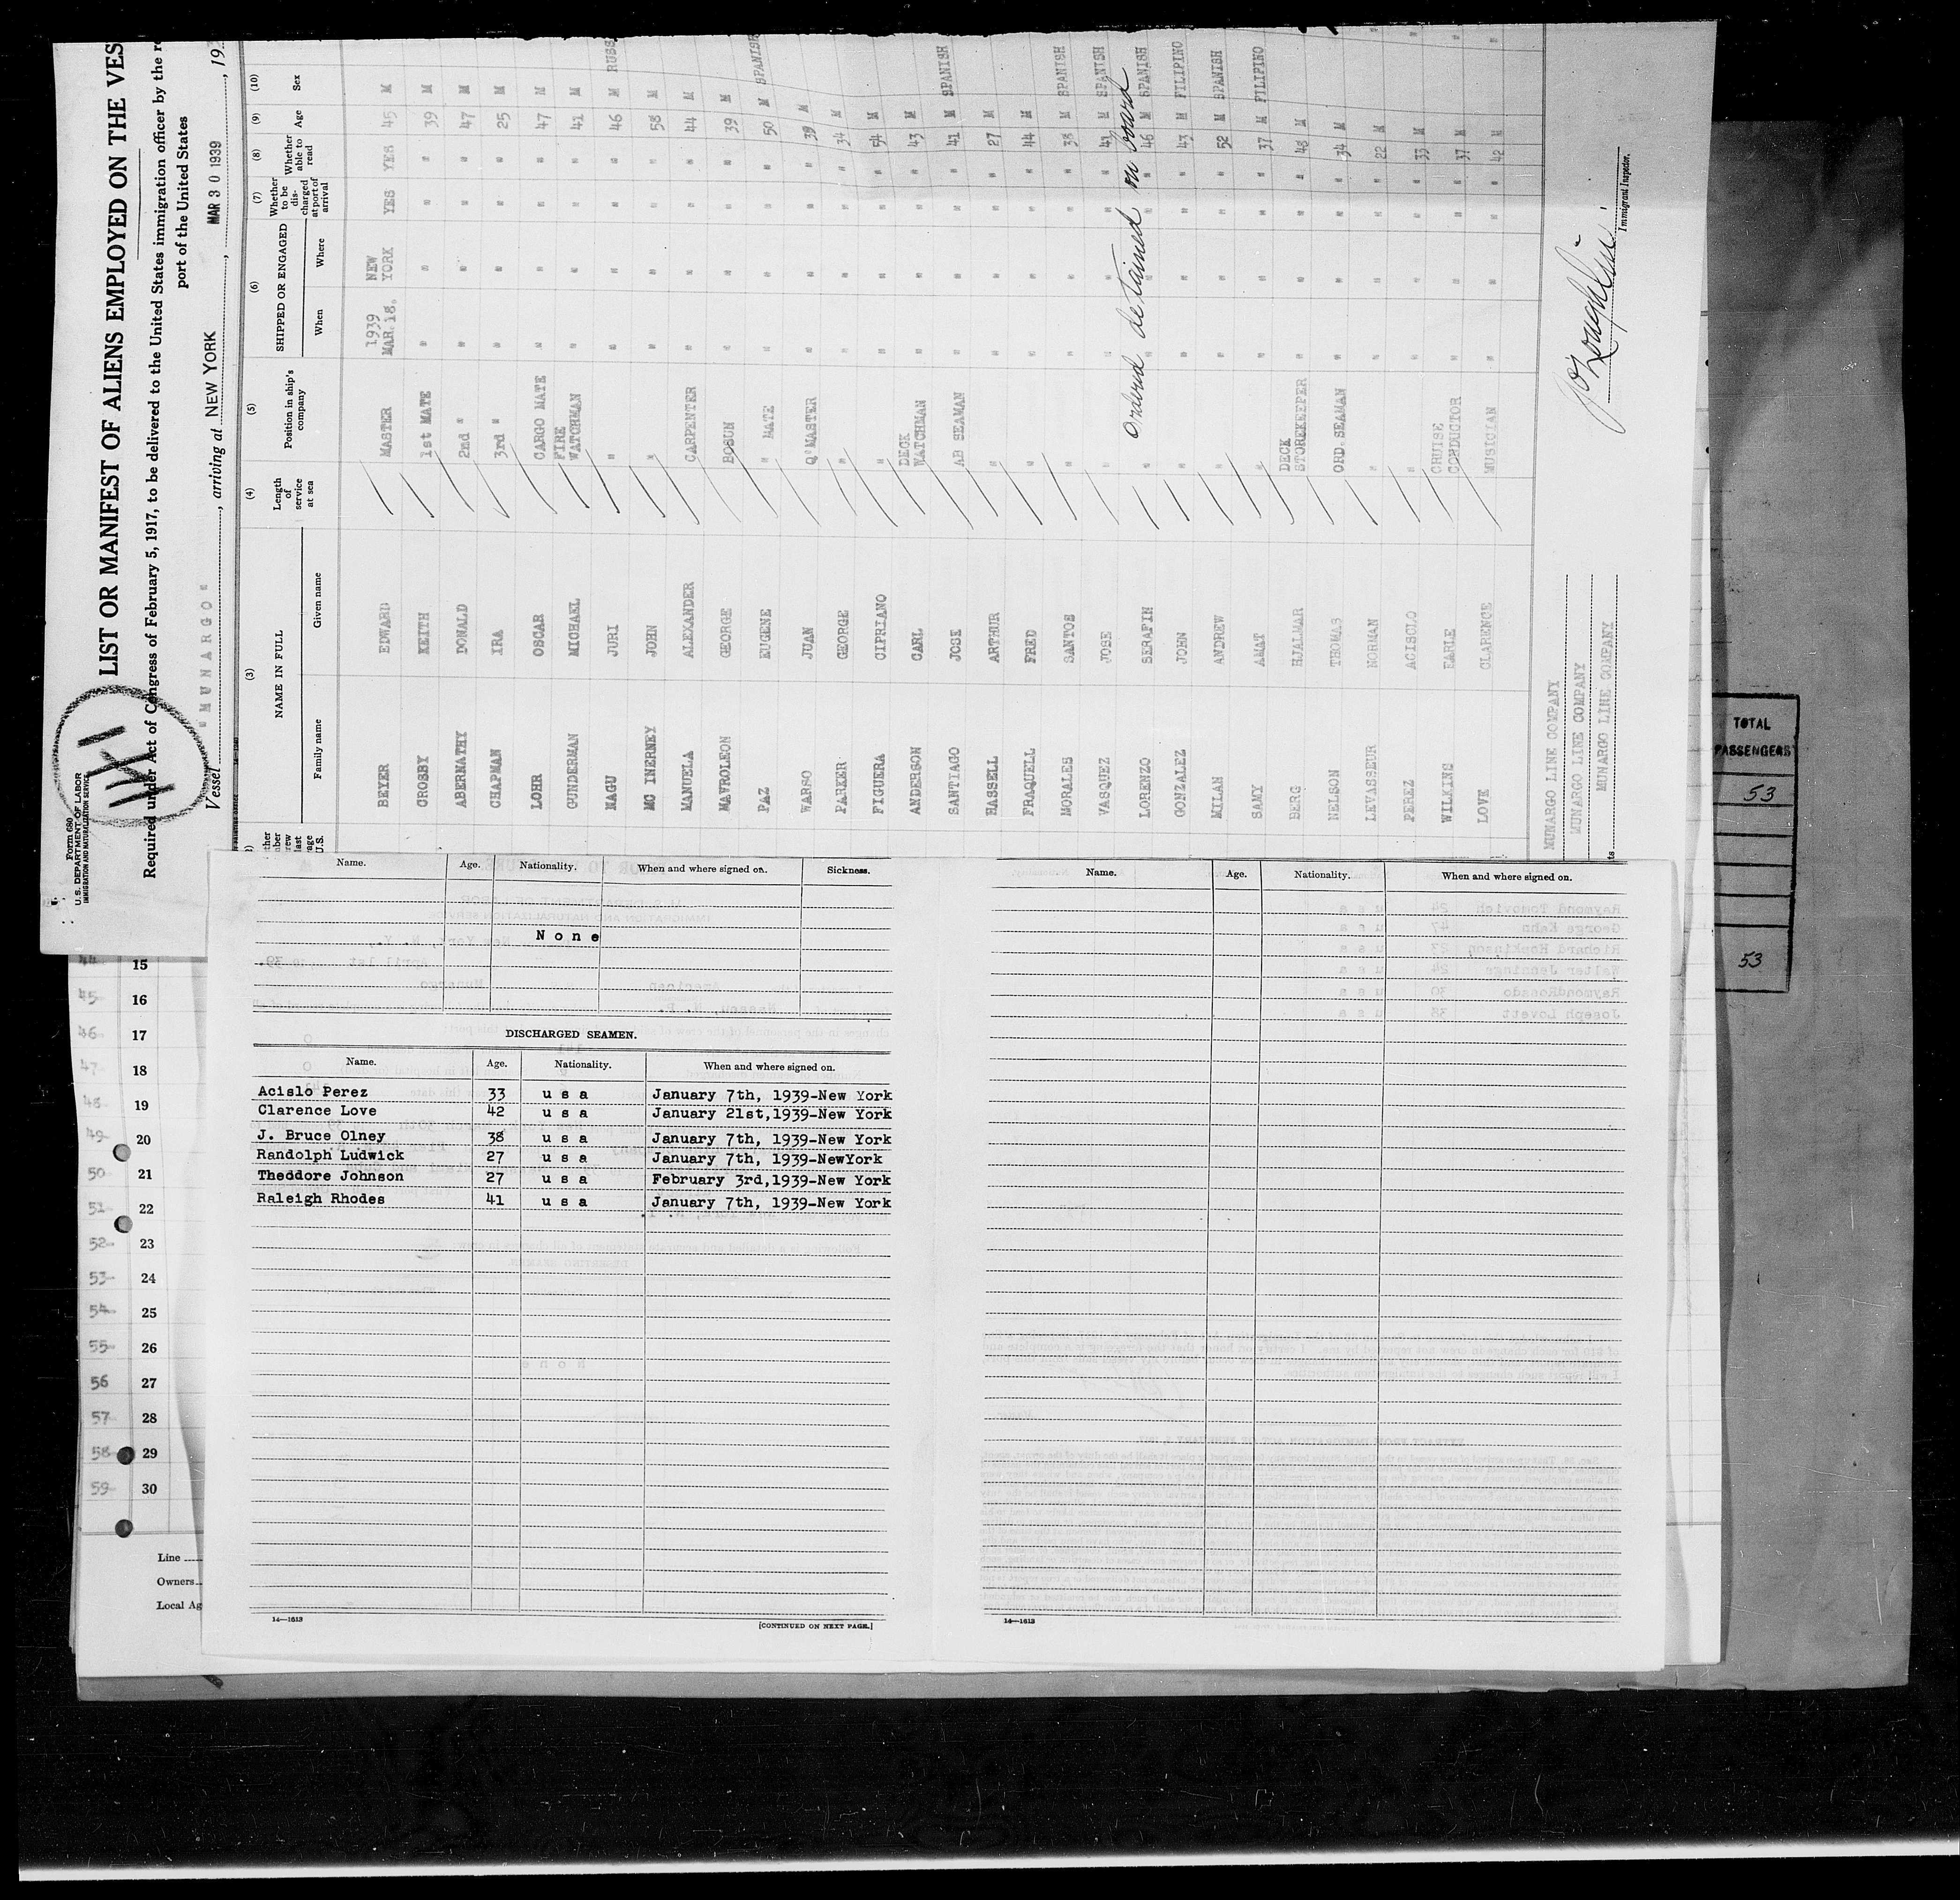 Form 680
U. S. DEPARTMENT OF LABOR
IMMIGRATION AND NATURALIZATION SERVICE
LIST OR MANIFEST OF ALIENS EMPLOYED ON THE VES
Required under Act of Congress of February 5, 1917, to be delivered to the United States immigration officer by the re
port of the United States
Vessel "MUNARGO", arriving at NEW YORK, MAR 30 1939, 193
(3) (4) (5) (6) (7) (8) (9) (10)
NAME IN FULL
Family name Given name
Length of service at sea
Position in ship's company
SHIPPED OR ENGAGED
When Where
Whether to be discharged at port of arrival
Whether able to read
Age
Sex
BEYER EDWARD MASTER 1939 MAR.18. NEW YORK YES YES 45 M
CROSBY KEITH 1st MATE " " " " 39 M
ABERNATHY DONALD 2nd " " " " " 47 M
CHAPMAN IRA 3rd " " " " " 25 M
LOHR OSCAR CARGO MATE " " " " 47 M
GUNDERMAN MICHAEL FIRE WATCHMAN " " " " 41 M
MAGU JURI " " " " " 46 M RUSS
MC INERNEY JOHN " " " " " 58 M
MANUELA ALEXANDER CARPENTER " " " " 44 M
MAVROLEON GEORGE BOSUN " " " " 39 M
PAZ EUGENE " MATE " " " " 50 M SPANISH
WARSO JUAN Q'MASTER " " " " 39 M
PARKER GEORGE " " " " " 34 M
FIGUERA CIPRIANO " " " " " 54 M
ANDERSON CARL DECK WATCHMAN " " " " 43 M
SANTIAGO JOSE AB SEAMAN " " " " 41 M SPANISH
HASSELL ARTHUR " " " " " 27 M
FRAQUELL FRED " " " " " 44 M
MORALES SANTOS " " " " " 38 M SPANISH
VASQUEZ JOSE " " " " " 41 M SPANISH
LORENZO SERAFIN " " " " " 46 M SPANISH
Ordered detained on board
GONZALEZ JOHN " " " " " 43 M FILIPINO
MILAN ANDREW " " " " " 52 M SPANISH
SAMY AMAT " " " " " 37 M FILIPINO
BERG HJALMAR DECK STOREKEEPER " " " " 48 M
NELSON THOMAS ORD. SEAMAN " " " " 34 M
LEVASSEUR NORMAN " " " " " 22 M
PEREZ ACISCLO " " " " " 33 M
WILKINS EARLE CRUISE CONDUCTOR " " " " 37 M
LOVE CLARENCE MUSICIAN " " " " 42 M
MUNARGO LINE COMPANY
MUNARGO LINE COMPANY
MUNARGO LINE COMPANY
Immigrant Inspector.
TOTAL
PASSENGERS
53
53
Name. Age. Nationality. When and where signed on. Sickness.
None
DISCHARGED SEAMEN.
Name. Age. Nationality. When and where signed on.
Acislo Perez 33 u s a January 7th, 1939-New York
Clarence Love 42 u s a January 21st,1939-New York
J. Bruce Olney 38 u s a January 7th, 1939-New York
Randolph Ludwick 27 u s a January 7th, 1939-NewYork
Theddore Johnson 27 u s a February 3rd,1939-New York
Raleigh Rhodes 41 u s a January 7th, 1939-New York
14—1613
[CONTINUED ON NEXT PAGE.]
Name. Age. Nationality. When and where signed on.
14—1613
44 15
45 16
46 17
47 18
48 19
49 20
50 21
51 22
52 23
53 24
54 25
55 26
56 27
57 28
58 29
59 30
Line
Owners
Local Ag